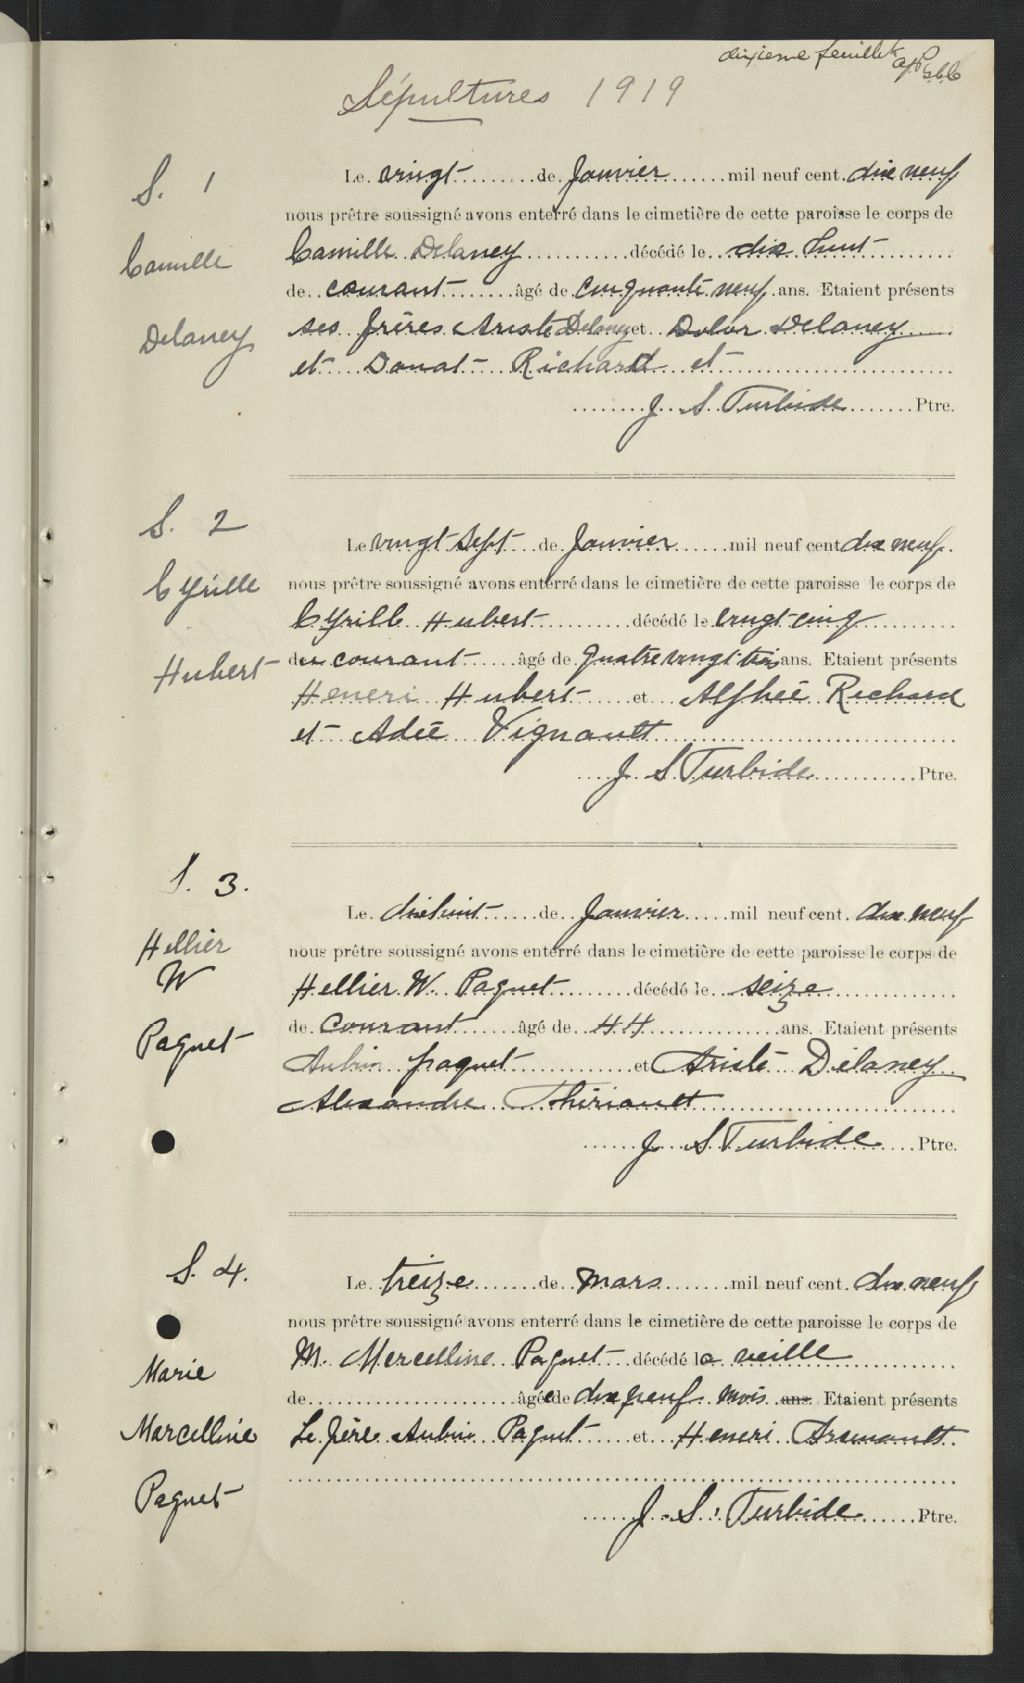 dixieme feuillet
Sépultures 1919
S. 1
Camille
Delaney
Le vingt de Janvier mil neuf cent dix neuf
nous prêtre soussigné avons enterré dans le cimetière de cette paroisse le corps de
Camille Delaney décédé le dix huit
de courant âgé de Cinquante neuf ans. Etaient présents
ses frères Ariste Delaney et Dolor Delaney
et Donat Richard et
J. S. Turbide Ptre.
S. 2
Cyrille
Hubert
Le vingt sept de Janvier mil neuf cent dix neuf
nous prêtre soussigné avons enterré dans le cimetière de cette paroisse le corps de
Cyrille Hubert décédé le vingt cinq
du courant âgé de quatre vingt trois ans. Etaient présents
Heneri Hubert et Alphée Richard
et Adée Vignault
J. S. Turbide Ptre.
S. 3.
Hellier
W
Paquet
Le dix huit de Janvier mil neuf cent dix neuf
nous prêtre soussigné avons enterré dans le cimetière de cette paroisse le corps de
Hellier W. Paquet décédé le seize
de Courant âgé de 44 ans. Etaient présents
Aubin paquet et Ariste Délaney
Alexandre Thériault
J. S. Turbide Ptre.
S. 4.
Marie
Marcelline
Paquet
Le treize de Mars mil neuf cent dix neuf
nous prêtre soussigné avons enterré dans le cimetière de cette paroisse le corps de
M. Mercelline Paquet décédé la veille
de âgée de dix neuf mois ans Etaient présents
Le père Aubin Paquet et Heneri Arsenault
J. S. Turbide Ptre.